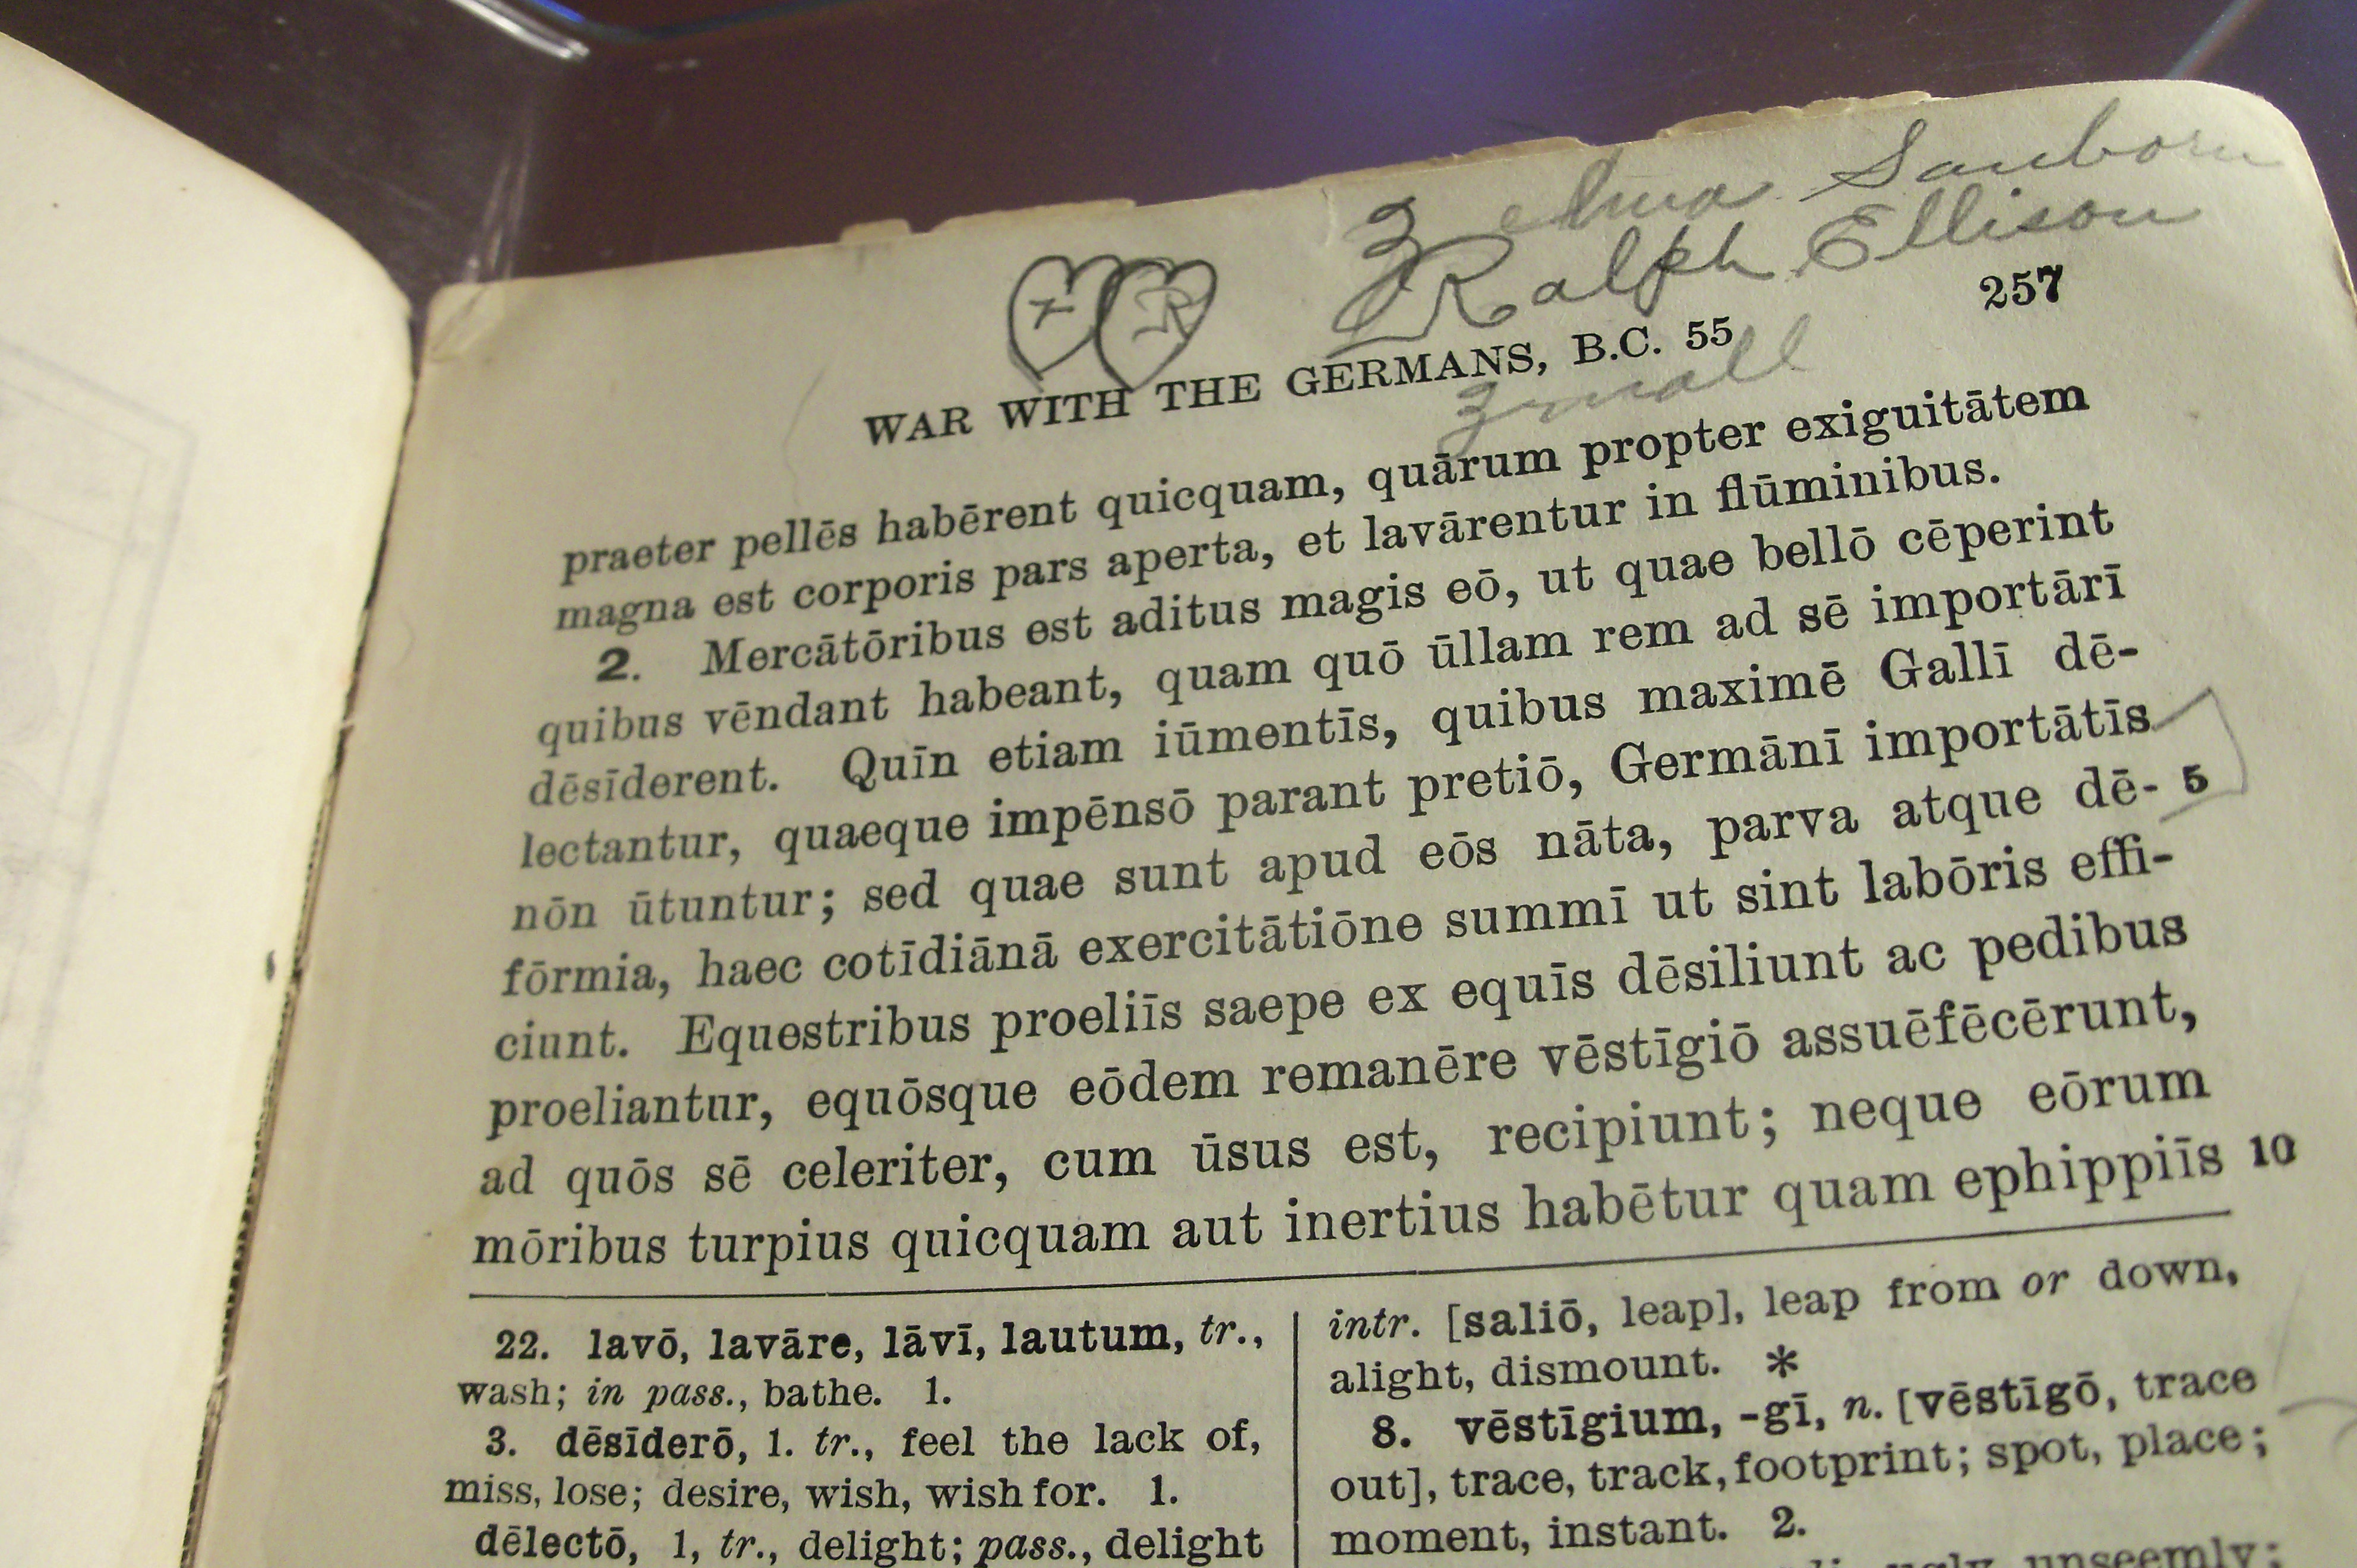 Zelma Sanborn
Ralph Ellison
F R
257
WAR WITH THE GERMANS, B.C. 55
praeter pellēs habērent quicquam, quārum propter exiguitātem
magna est corporis pars aperta, et lavārentur in flūminibus.
2. Mercātōribus est aditus magis eō, ut quae bellō cēperint
quibus vēndant habeant, quam quō ūllam rem ad sē importārī
dēsīderent. Quīn etiam iūmentīs, quibus maximē Gallī dē-
lectantur, quaeque impēnsō parant pretiō, Germānī importātīs
nōn ūtuntur; sed quae sunt apud eōs nāta, parva atque dē- 5
fōrmia, haec cotīdiānā exercitātiōne summī ut sint labōris effi-
ciunt. Equestribus proeliīs saepe ex equīs dēsiliunt ac pedibus
proeliantur, equōsque eōdem remanēre vēstīgiō assuēfēcērunt,
ad quōs sē celeriter, cum ūsus est, recipiunt; neque eōrum
mōribus turpius quicquam aut inertius habētur quam ephippiīs 10
22. lavō, lavāre, lāvī, lautum, tr.,
wash; in pass., bathe. 1.
3. dēsīderō, 1. tr., feel the lack of,
miss, lose; desire, wish, wish for. 1.
dēlectō, 1, tr., delight; pass., delight
intr. [saliō, leap], leap from or down,
alight, dismount. *
8. vēstīgium, -gī, n. [vēstīgō, trace
out], trace, track, footprint; spot, place;
moment, instant. 2.
ugly, unseemly;